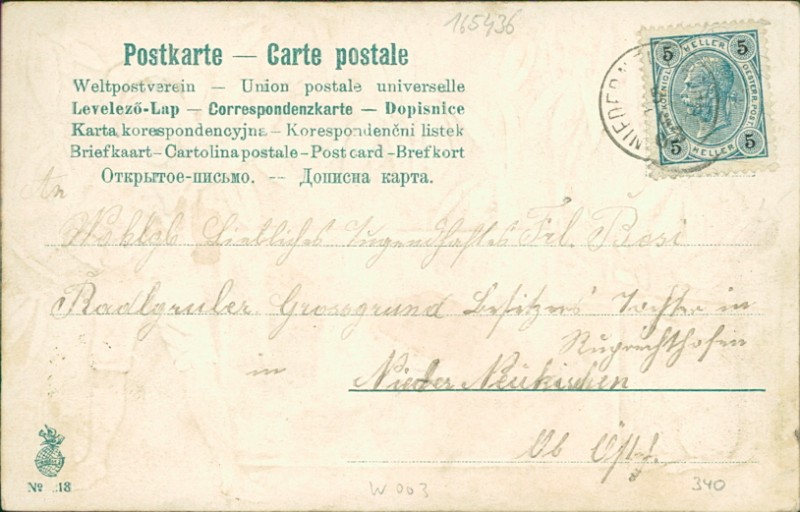 165436
Postkarte — Carte postale
Weltpostverein — Union postale universelle
Levelező-Lap — Correspondenzkarte — Dopisnice
Karta korespondencyjna — Korespondenční listek
Briefkaart — Cartolina postale — Post card — Brefkort
Открытое-письмо. — Дописна карта.
5 HELLER 5
5 HELLER 5
An
Wohlgb Liebliches Tugendhaftes Frl. Rosi
Radlgruber Grossgrund Besitzers Tochter in
Ruprechthofen
in Nieder Neukirchen
Ob Öst.
Nº 18
W 003
340